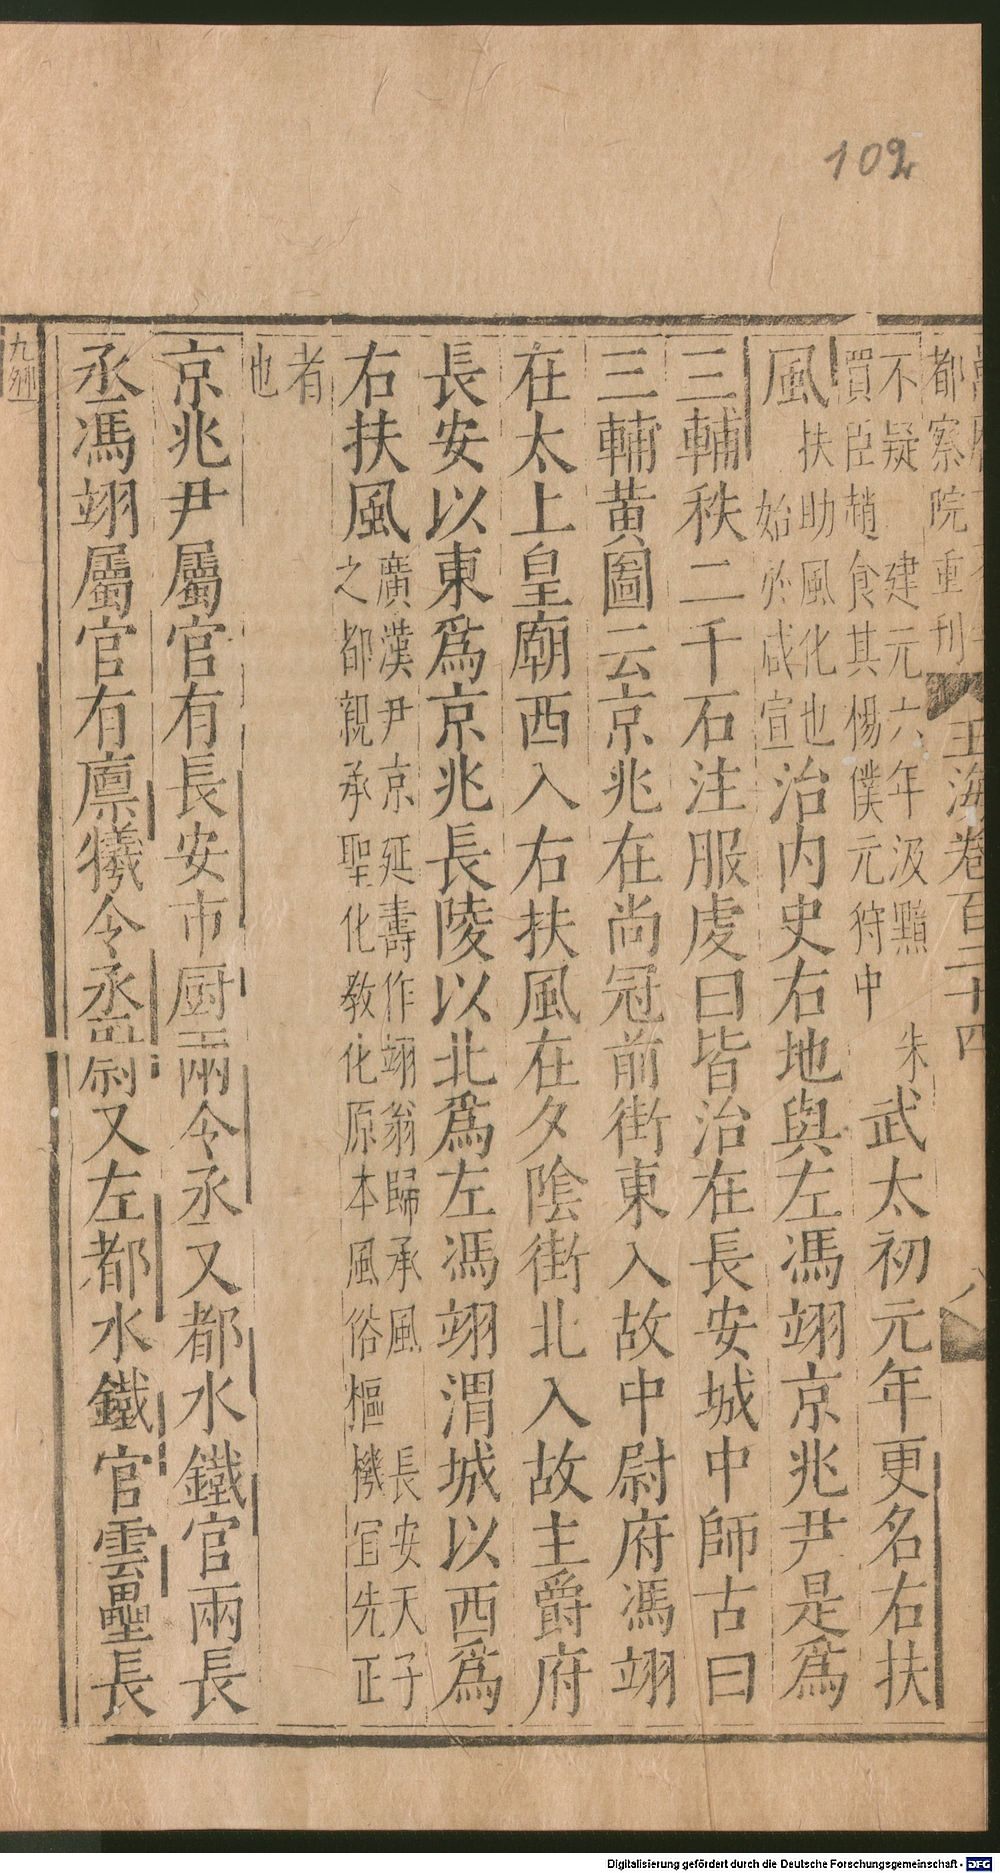 102
都察院重刊
玉海卷百二十四
八
不疑 建元六年汲黯 朱
買臣趙食其惕僕元狩中
武太初元年更名右扶
風
扶助風化也
始於咸宣
治內史右地與左馮翊京兆尹是爲
三輔秩二千石注服虔曰皆治在長安城中師古曰
三輔黃圖云京兆在尚冠前街東入故中尉府馮翊
在太上皇廟西入右扶風在夕陰街北入故主爵府
長安以東爲京兆長陵以北爲左馮翊渭城以西爲
右扶風
廣漢尹京延壽作翊翁歸承風 長安天子
之都親承聖化敎化原本風俗樞機宜先正
者
也
京兆尹屬官有長安市厨兩令丞又都水鐵官兩長
丞馮翊屬官有廪犧令丞尉又左都水鐵官雲壘長
Digitalisierung gefördert durch die Deutsche Forschungsgemeinschaft - DFG